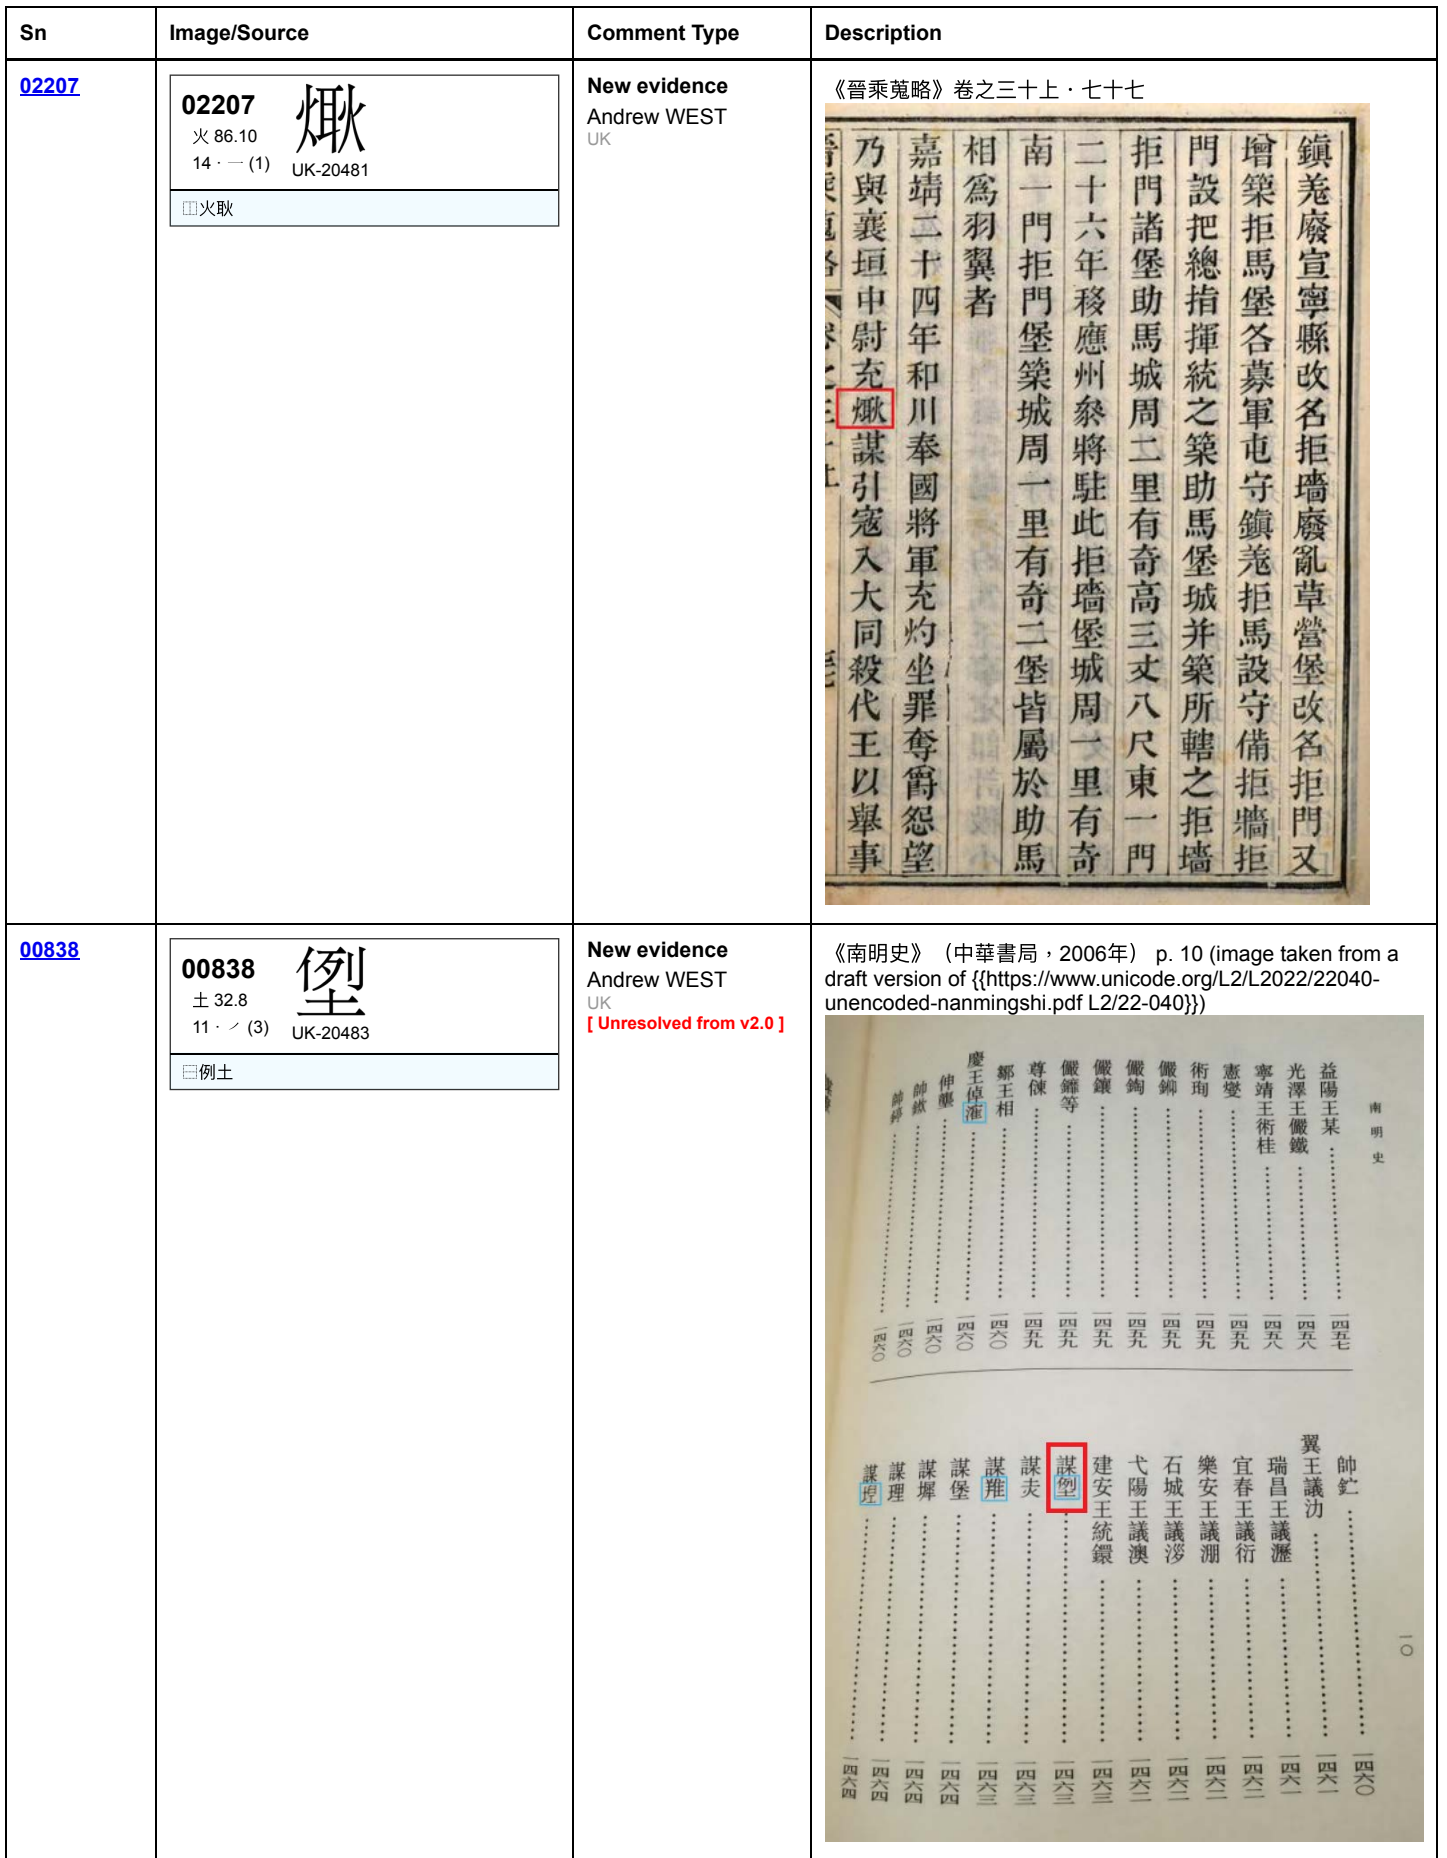 Sn
Image/Source
Comment Type
Description
02207
02207
火 86.10
14 · 一 (1)
⿰火耿
UK-20481
⿰火耿
New evidence
Andrew WEST
UK
《晉乘蒐略》卷之三十上 · 七十七
鎮羌廢宣寧縣改名拒墻廢亂草營堡改名拒門又
增築拒馬堡各募軍屯守鎮羌拒馬設守備拒墻拒
門設把總指揮統之築助馬堡城并築所轄之拒墻
拒門諸堡助馬城周二里有奇高三丈八尺東一門
二十六年移應州叅將駐此拒墻堡城周一里有奇
南一門拒門堡築城周一里有奇二堡皆屬於助馬
相爲羽翼者
嘉靖二十四年和川奉國將軍充灼坐罪奪爵怨望
乃與襄垣中尉充⿰火耿謀引寇入大同殺代王以舉事
00838
00838
土 32.8
11 · ㇒ (3)
⿱例土
UK-20483
⿱例土
New evidence
Andrew WEST
UK
[ Unresolved from v2.0 ]
《南明史》（中華書局，2006年） p. 10 (image taken from a
draft version of {{https://www.unicode.org/L2/L2022/22040-
unencoded-nanmingshi.pdf L2/22-040}})
南明史
益陽王某……一四五七
光澤王儼鐵……一四五八
寧靖王術桂……一四五八
憲燮……一四五九
術珣……一四五九
儼……一四五九
儼錭……一四五九
儼鑲……一四五九
儼等……一四五九
尊……一四五九
鄒王相……一四六〇
慶王倬……一四六〇
伸……一四六〇
帥……一四六〇
帥……一四六〇
帥……一四六〇
翼王議……一四六一
瑞昌王議瀝……一四六一
宜春王議衍……一四六二
樂安王議淜……一四六二
石城王議……一四六二
弋陽王議澳……一四六二
建安王統鐶……一四六三
謀⿱例土……一四六三
謀……一四六三
謀……一四六三
謀堡……一四六四
謀墀……一四六四
謀理……一四六四
謀……一四六四
一〇